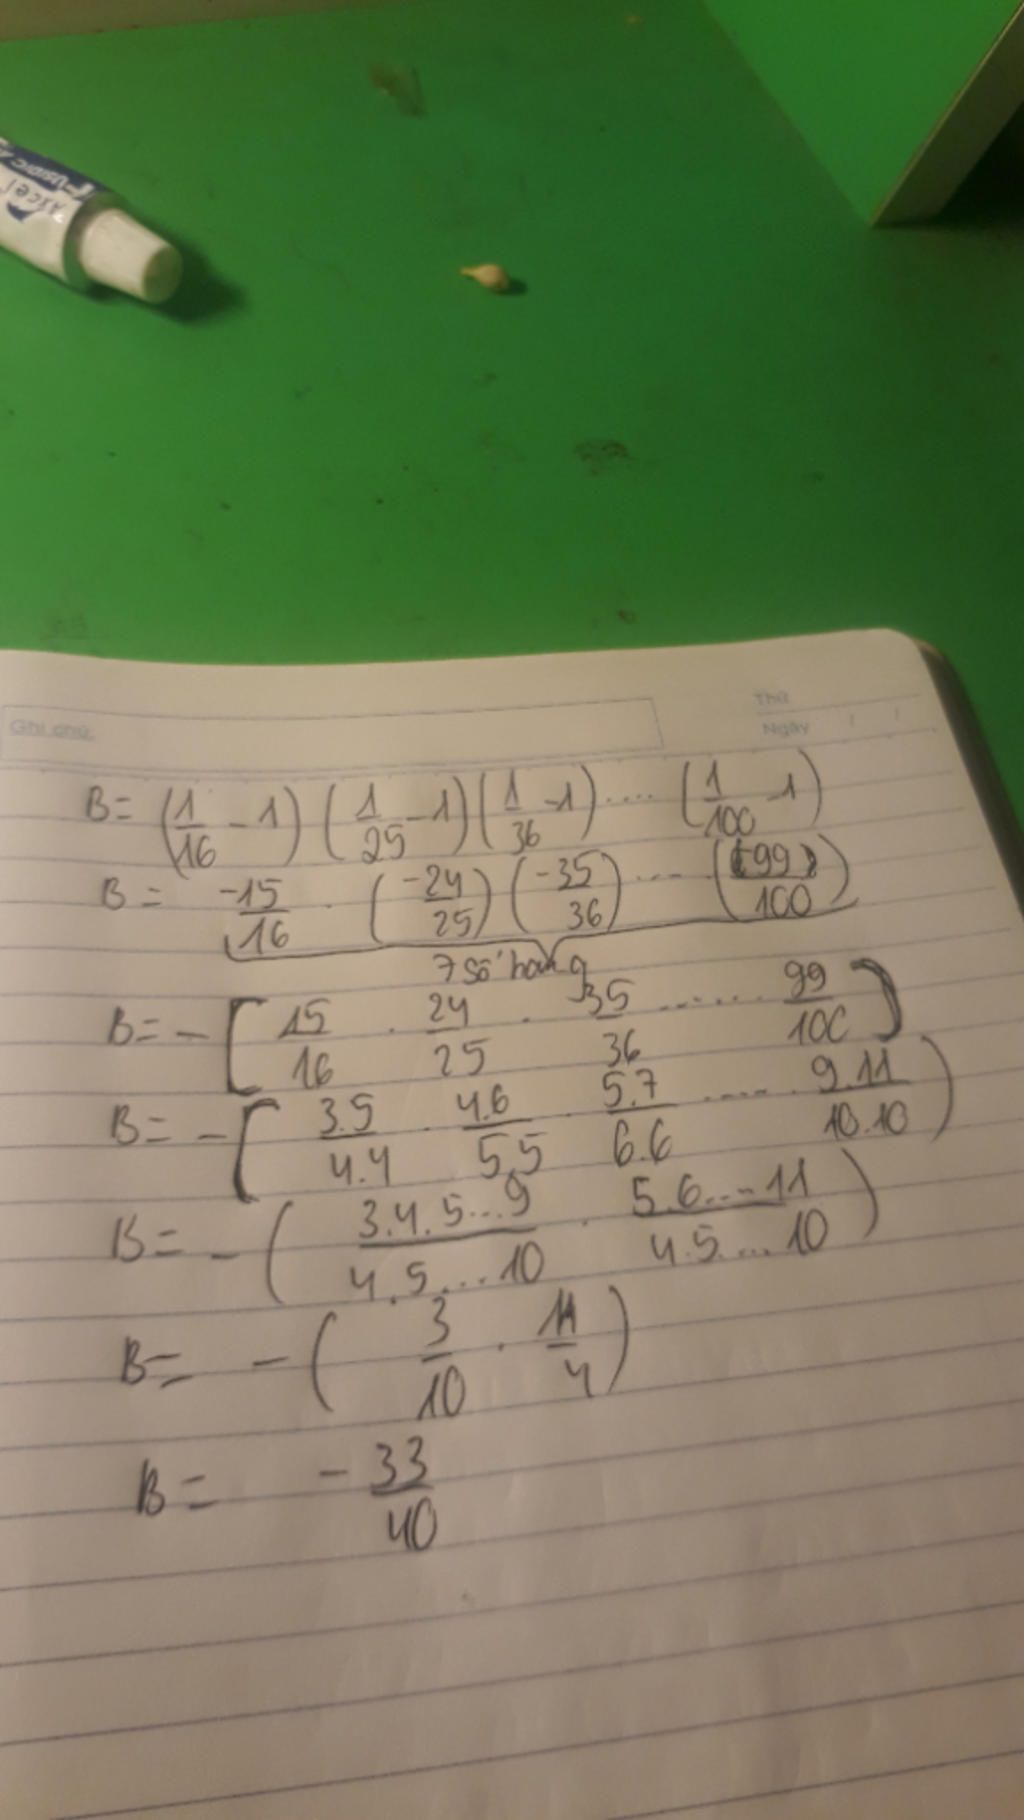 Ghi chú:
Thứ
Ngày / /
B = (1/16 - 1) (1/25 - 1) (1/36 - 1) .... (1/100 - 1)
B = -15/16 . (-24/25) (-35/36) .... ((-99)/100)
7 số hạng
B = - [15/16 . 24/25 . 35/36 ...... 99/100]
B = - [3.5/4.4 . 4.6/5.5 . 5.7/6.6 ..... 9.11/10.10)
B = - (3.4.5...9/4.5....10 . 5.6...11/4.5....10)
B = - (3/10 . 11/4)
B = -33/40